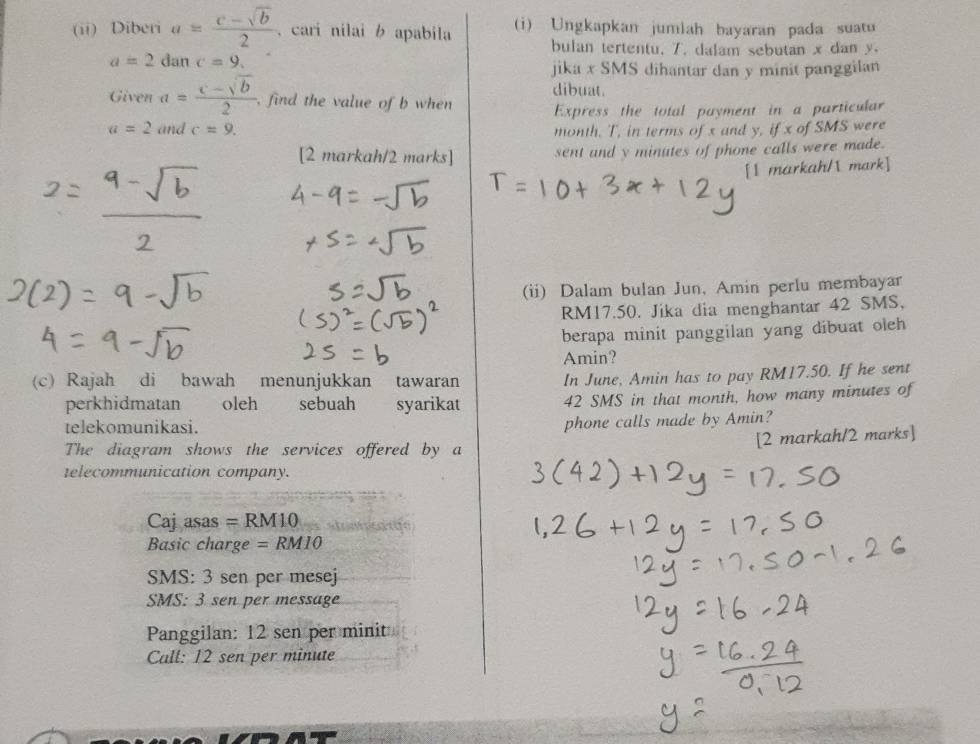 (ii) Diberi a = (c − √b)/2, cari nilai b apabila
a = 2 dan c = 9.
Given a = (c − √b)/2, find the value of b when
a = 2 and c = 9.
[2 markah/2 marks]
2 = (9 − √b)/2
2(2) = 9 − √b
4 = 9 − √b
4 − 9 = −√b
+5 = +√b
5 = √b
(5)² = (√b)²
25 = b
(c) Rajah di bawah menunjukkan tawaran
perkhidmatan oleh sebuah syarikat
telekomunikasi.
The diagram shows the services offered by a
telecommunication company.
Caj asas = RM10
Basic charge = RM10
SMS: 3 sen per mesej
SMS: 3 sen per message
Panggilan: 12 sen per minit
Call: 12 sen per minute
(i) Ungkapkan jumlah bayaran pada suatu
bulan tertentu, T, dalam sebutan x dan y,
jika x SMS dihantar dan y minit panggilan
dibuat.
Express the total payment in a particular
month, T, in terms of x and y, if x of SMS were
sent and y minutes of phone calls were made.
[1 markah/1 mark]
T = 10 + 3x + 12y
(ii) Dalam bulan Jun, Amin perlu membayar
RM17.50. Jika dia menghantar 42 SMS,
berapa minit panggilan yang dibuat oleh
Amin?
In June, Amin has to pay RM17.50. If he sent
42 SMS in that month, how many minutes of
phone calls made by Amin?
[2 markah/2 marks]
3(42) + 12y = 17.50
1,26 + 12y = 17.50
12y = 17.50 − 1.26
12y = 16.24
y = 16.24/0.12
y =